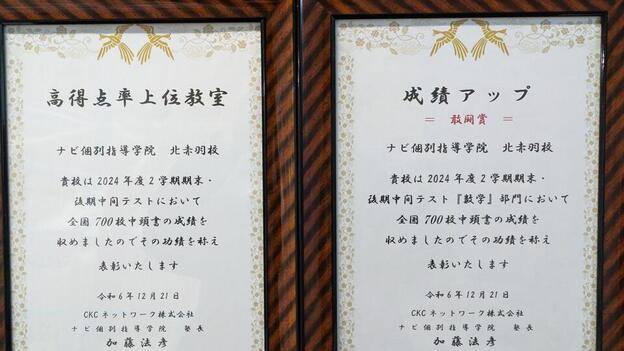 高得点率上位教室
ナビ個別指導学院 北赤羽校
貴校は2024年度2学期期末・
後期中間テストにおいて
全国700校中頭書の成績を
収めましたのでその功績を称え
表彰いたします
令和6年12月21日
CKCネットワーク株式会社
ナビ個別指導学院 塾長
加藤法彦
成績アップ
= 敢闘賞 =
ナビ個別指導学院 北赤羽校
貴校は2024年度2学期期末・
後期中間テスト『数学』部門において
全国700校中頭書の成績を
収めましたのでその功績を称え
表彰いたします
令和6年12月21日
CKCネットワーク株式会社
ナビ個別指導学院 塾長
加藤法彦